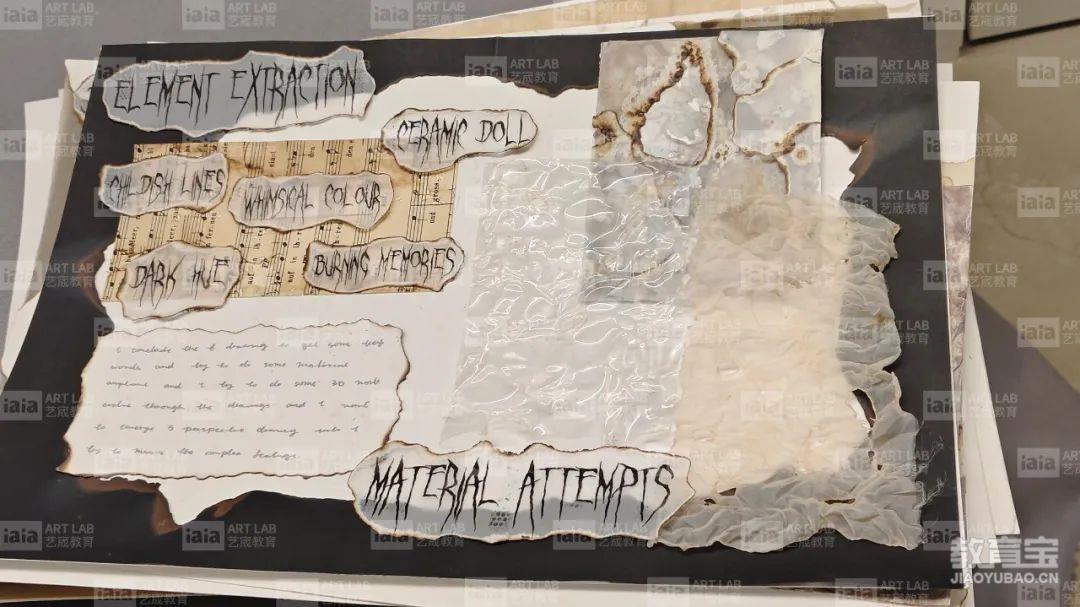 ELEMENT EXTRACTION
CERAMIC DOLL
CHILDISH LINES
WHIMSICAL COLOUR
DARK HUE
BURNING MEMORIES
I conclude the 6 drawing to get some key
words and try to do some material
and I try to do some 3D work
through the drawings and I want
to 5 perspective drawing into 1
try to the complex feelings.
MATERIAL ATTEMPTS
und gross
auf in ih
iaia ART LAB
艺宬教育
教育宝
JIAOYUBAO.CN